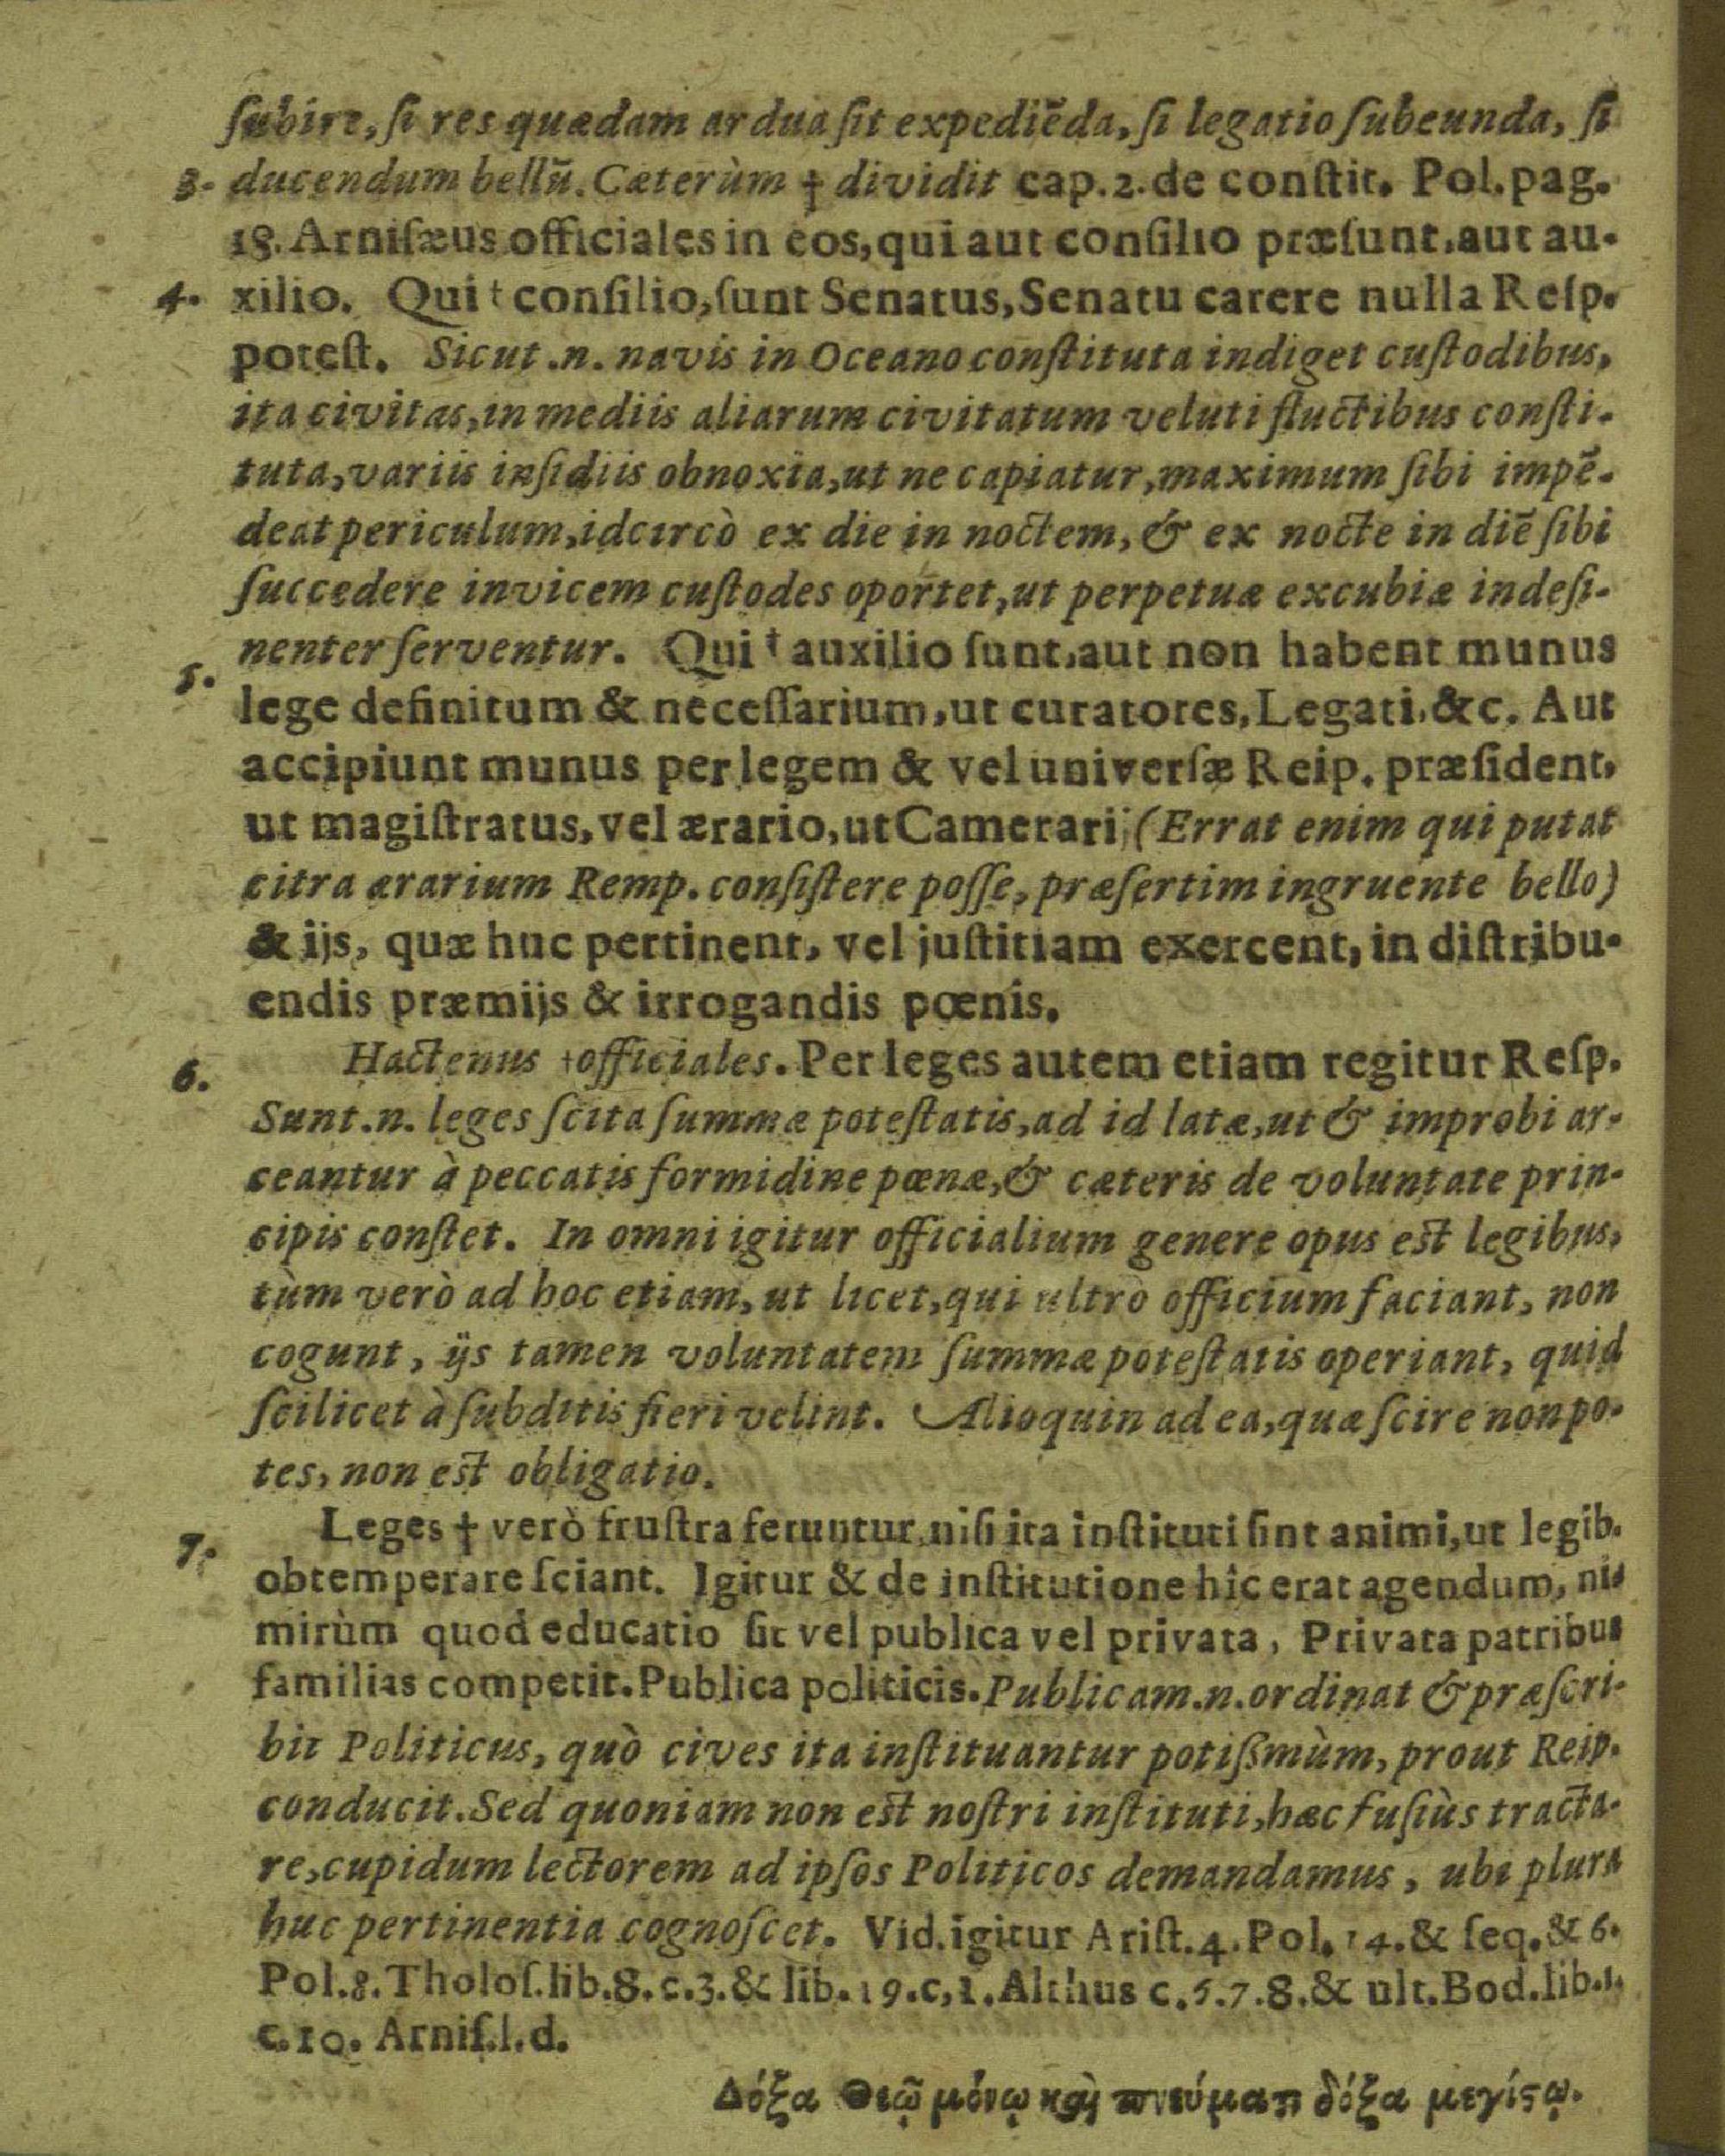 ſubire, ſi res quædam ardua ſit expediẽda, ſi legatio ſubeunda, ſi
3. ducendum bellũ. Cæterùm † dividit cap. 2. de conſtit. Pol. pag.
18. Arniſæus officiales in eos, qui aut conſilio præſunt, aut au-
4. xilio. Qui † conſilio, ſunt Senatus, Senatu carere nulla Reſp.
poteſt. Sicut .n. navis in Oceano conſtituta indiget cuſtodibus,
ita civitas, in mediis aliarum civitatum veluti fluctibus conſti-
tuta, variis inſidiis obnoxia, ut ne capiatur, maximum ſibi impẽ-
deat periculum, idcircò ex die in noctem, & ex nocte in diẽ ſibi
ſuccedere invicem cuſtodes oportet, ut perpetuæ excubiæ indeſi-
nenter ſerventur. Qui † auxilio ſunt, aut non habent munus
5. lege definitum & neceſſarium, ut curatores, Legati, &c. Aut
accipiunt munus per legem & vel univerſæ Reip. præſident,
ut magiſtratus, vel ærario, ut Camerarij (Errat enim qui putat
citra ærarium Remp. conſiſtere poſſe, præſertim ingruente bello)
& ijs, quæ huc pertinent, vel juſtitiam exercent, in diſtribu-
endis præmijs & irrogandis pœnis.
6. Hactenus † officiales. Per leges autem etiam regitur Reſp.
Sunt .n. leges ſcita ſummæ poteſtatis, ad id latæ, ut & improbi ar-
ceantur à peccatis formidine pœnæ, & cæteris de voluntate prin-
cipis conſtet. In omni igitur officialium genere opus eſt legibus,
tùm verò ad hoc etiam, ut licet, qui ultrò officium faciant, non
cogunt, ijs tamen voluntatem ſummæ poteſtatis operiant, quid
ſcilicet à ſubditis fieri velint. Alioquin ad ea, quæ ſcire non po-
tes, non eſt obligatio.
7. Leges † verò fruſtra feruntur, niſi ita inſtituti ſint animi, ut legib.
obtemperare ſciant. Igitur & de inſtitutione hîc erat agendum, ni-
mirùm quod educatio ſit vel publica vel privata, Privata patribus
familias competit. Publica politicis. Publicam .n. ordinat & præſcri-
bit Politicus, quò cives ita inſtituantur potißmùm, prout Reip.
conducit. Sed quoniam non eſt noſtri inſtituti, hæc fuſiùs tracta-
re, cupidum lectorem ad ipſos Politicos demandamus, ubi plura
huc pertinentia cognoſcet. Vid. igitur Ariſt. 4. Pol. 14. & ſeq. & 6.
Pol. 8. Tholoſ. lib. 8. c. 3. & lib. 19. c, 1. Althus c. 5. 7. 8. & ult. Bod. lib. 1.
c. 10. Arniſ. l. d.
Δόξα Θεῷ μόνῳ καὶ πνεύματι δόξα μεγίστῳ.